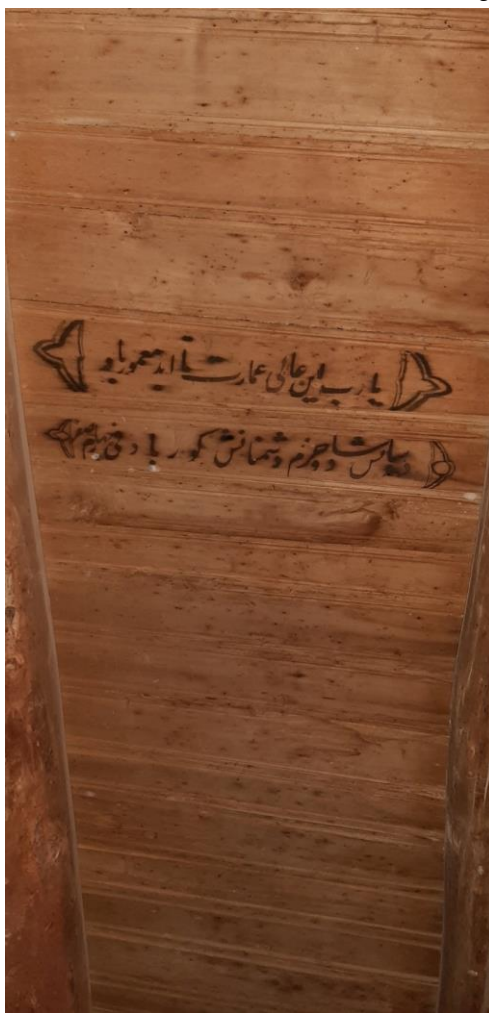 یا رب این عالی عمارت تا ابد معمور باد
شاد و خرم دشمنانش کور باد